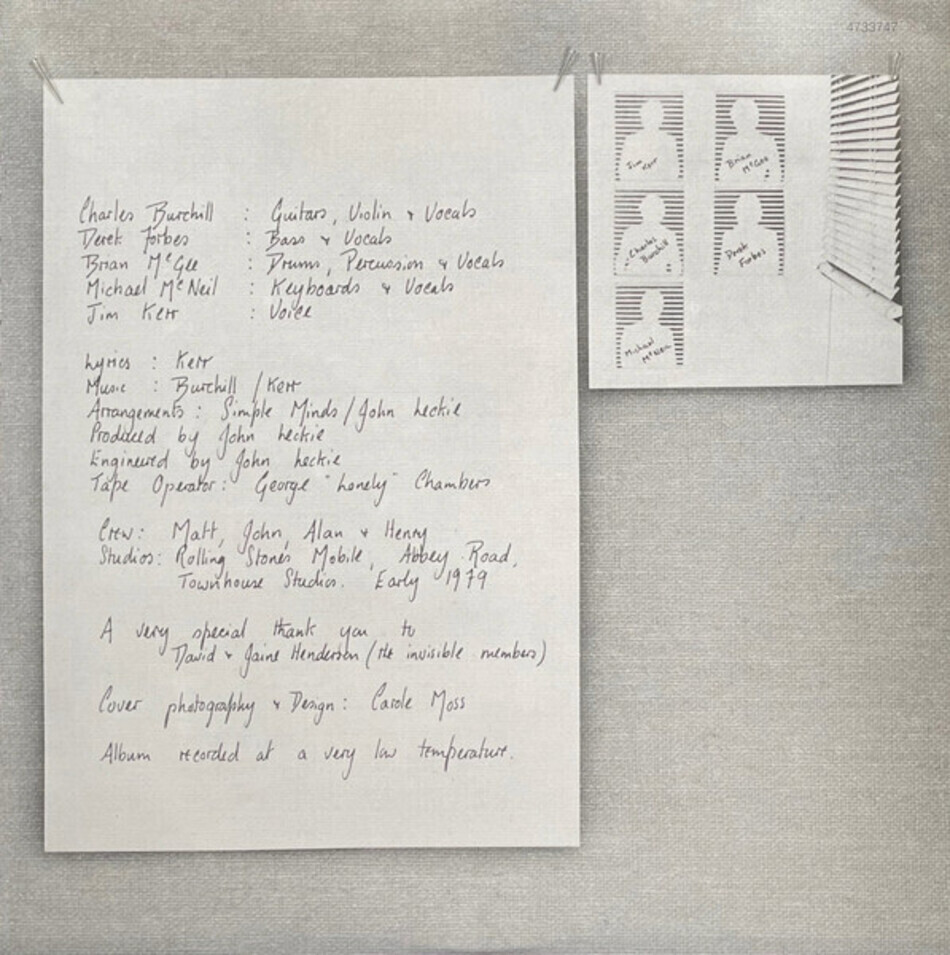 4733747
Charles Burchill : Guitars, Violin & Vocals
Derek Forbes : Bass & Vocals
Brian McGee : Drums, Percussion & Vocals
Michael McNeil : Keyboards & Vocals
Jim Kerr : Voice
Lyrics : Kerr
Music : Burchill / Kerr
Arrangements : Simple Minds / John Leckie
Produced by John Leckie
Engineered by John Leckie
Tape Operator : George "Lonely" Chambers
Crew : Matt, John, Alan & Henry
Studios : Rolling Stones Mobile, Abbey Road,
Townhouse Studios. Early 1979
A very special thank you to
David & Jaine Henderson (the invisible members)
Cover photography & Design : Carole Moss
Album recorded at a very low temperature.
Jim
Kerr
Brian
McGee
Charles
Burchill
Derek
Forbes
Michael
McNeil